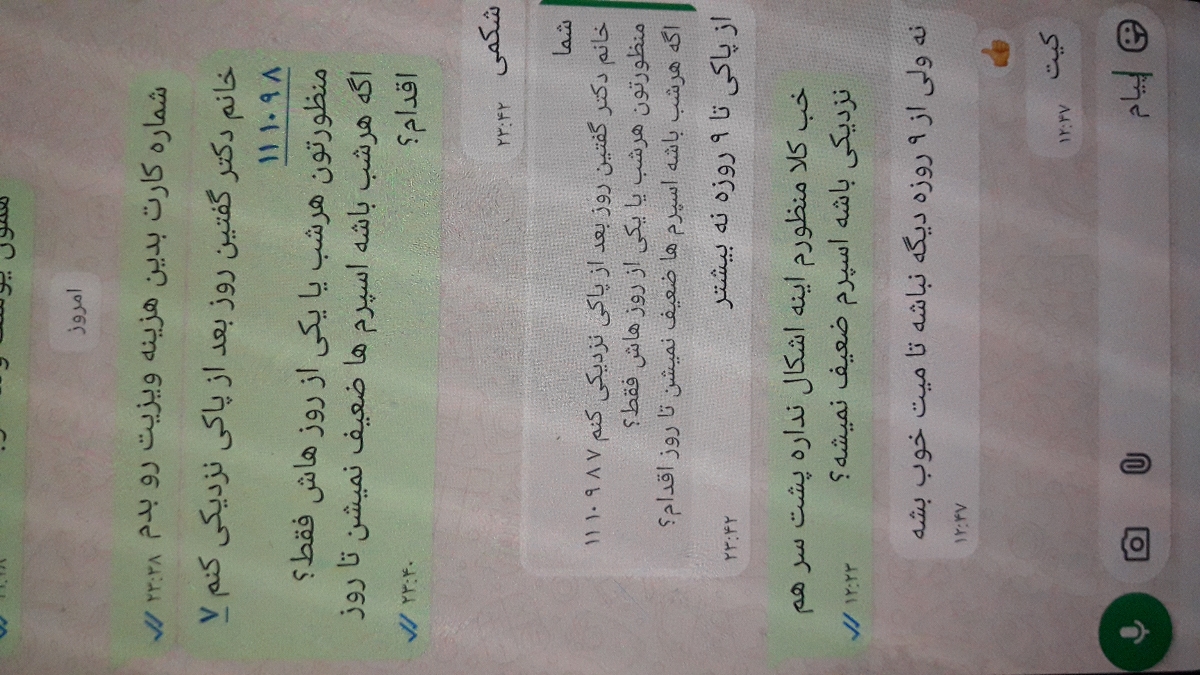 امروز
شماره کارت بدین هزینه ویزیت رو بدم
۲۳:۳۸
خانم دکتر گفتین روز بعد از پاکی نزدیکی کنم ۷
۸ ۹ ۱۰ ۱۱
منظورتون هرشب یا یکی از روز هاش فقط؟
اگه هرشب باشه اسپرم ها ضعیف نمیشن تا روز
اقدام؟
۲۳:۴۰
شکمی
۲۳:۴۲
شما
خانم دکتر گفتین روز بعد از پاکی نزدیکی کنم ۷ ۸ ۹ ۱۰ ۱۱
منظورتون هرشب یا یکی از روز هاش فقط؟
اگه هرشب باشه اسپرم ها ضعیف نمیشن تا روز اقدام؟
از پاکی تا ۹ روزه نه بیشتر
۲۳:۴۲
خب کلا منظورم اینه اشکال نداره پشت سر هم
نزدیکی باشه اسپرم ضعیف نمیشه؟
۱۲:۲۳
نه ولی از ۹ روزه دیگه نباشه تا میت خوب بشه
۱۲:۴۷
کیت
۱۲:۴۷
پیام